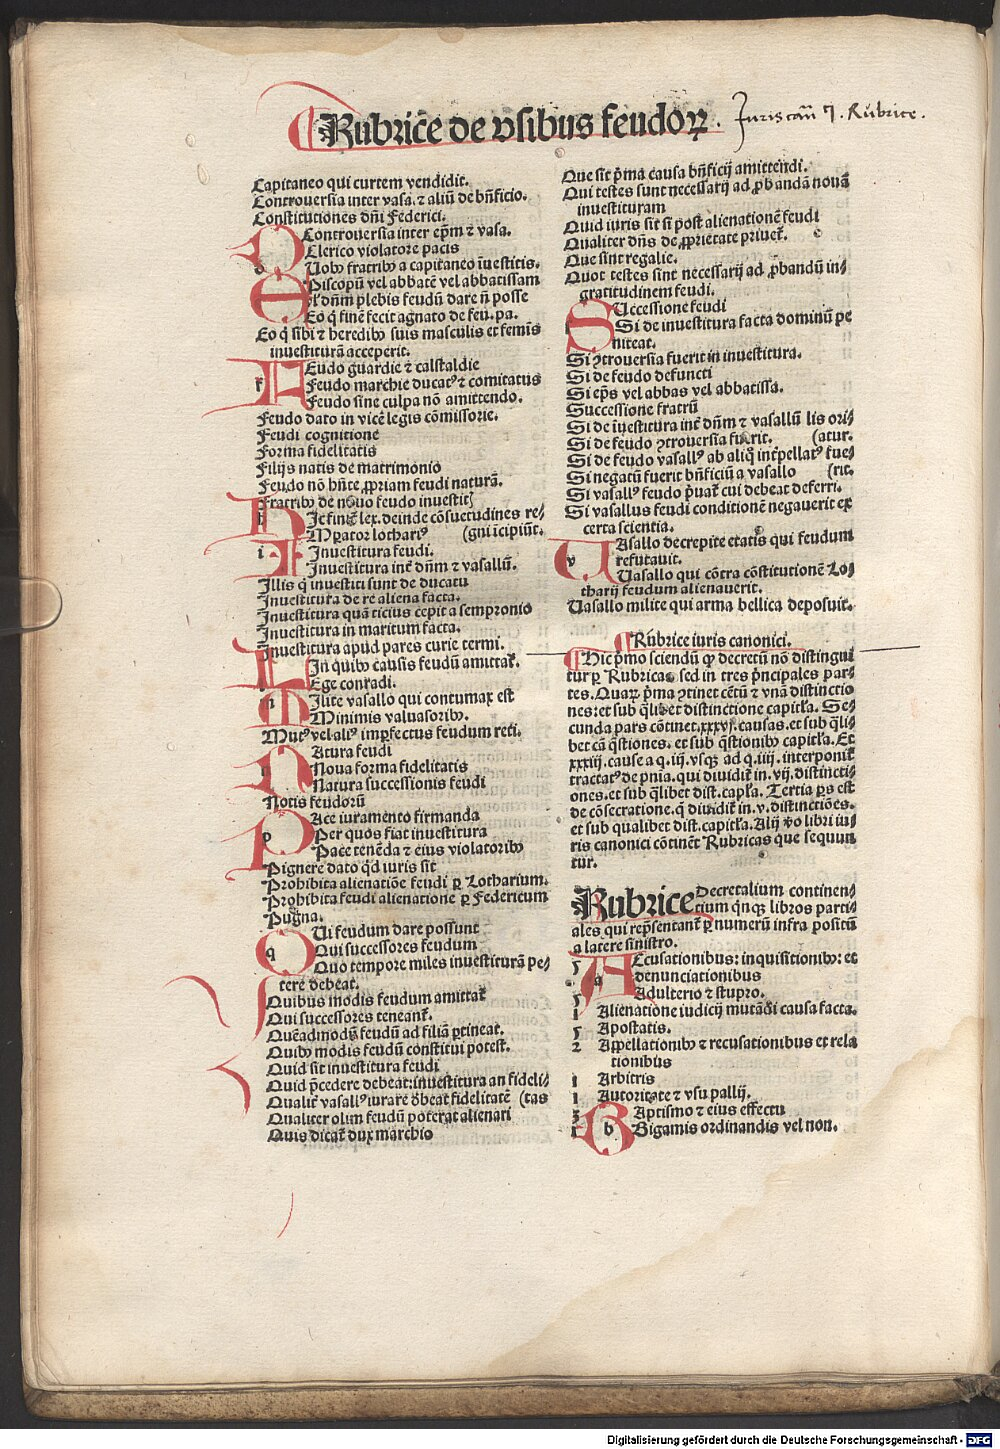 Rubrice de vsibus feudoꝝ.
Juris can̄ ⁊. Rubrice.
Capitaneo qui curtem vendidit.
Controuersia inter vasa. ⁊ aliū de bn̄ficio.
Constitutiones dn̄i Federici.
Controuersia inter ep̄m ⁊ vasa.
Clerico violatore pacis
Duobꝰ fratribꝰ a capitaneo īuestitis.
Episcopū vel abbatē vel abbatissam
vl' dn̄m plebis feudū dare n̄ posse
Eo q̄ finē fecit agnato de feu. pa.
Eo q̄ sibi ⁊ heredibꝰ suis masculis et femīs
inuestiturā acceperit.
f FEudo guardie ⁊ calstaldie
Feudo marchie ducatꝰ ⁊ comitatus
Feudo sine culpa nō amittendo.
Feudo dato in vicē legis cōmissorie.
Feudi cognitione
Forma fidelitatis
Filijs natis de matrimonio
Feudo nō hn̄te ꝓpriam feudi naturā.
Fratribꝰ de nouo feudo inuestit̄
h HIc finit̄ lex. deinde cōsuetudines re⸗
IMꝑator lothariꝰ (gni īcipiūt.
i Inuestitura feudi.
Inuestitura int̄ dn̄m ⁊ vasallū.
Illis q̄ inuestiti sunt de ducatu
Inuestitura de re aliena facta.
Inuestitura quā ticius cepit a sempronio
Inuestitura in maritum facta.
Inuestitura apud pares curie termi.
In quibꝰ causis feudū amittat̄.
LEge conradi.
m MIlite vasallo qui contumax est
Minimis valuasoribꝰ.
Mutꝰ vel aliꝰ imꝑfectus feudum reti.
n NAtura feudi
Noua forma fidelitatis
Natura successionis feudi
Notis feudorū
p PAce iuramento firmanda
Per quos fiat inuestitura
Pace tenēda ⁊ eius violatoribꝰ
Pignere dato qd̄ iuris sit
Prohibita alienatiōe feudi ꝑ Lotharium.
Prohibita feudi alienatione ꝑ Federicum
Pugna.
q QVi feudum dare possunt
Qui successores feudum
Quo tempore miles inuestiturā pe⸗
tere debeat.
Quibus modis feudum amittat̄
Qui successores teneant̄.
Quēadmodū feudū ad filiā ꝑtineat.
Quibꝰ modis feudū constitui potest.
Quid sit inuestitura feudi
Quid p̄cedere debeat: inuestitura an fideli⸗
Qualit̄ vasallꝰ iurare debeat fidelitatē (tas
Qualiter olim feudū poterat alienari
Quis dicat̄ dux marchio
Que sit p̄ma causa bn̄ficij amittendi.
Qui testes sunt necessarij ad ꝓbandā nouā
inuestituram
Quid iuris sit si post alienationē feudi
Qualiter dn̄s de ꝓprietate priuet̄.
Que sint regalie.
Quot testes sint necessarij ad ꝓbandū in⸗
gratitudinem feudi.
SUccessione feudi
Si de inuestitura facta dominū pe
niteat.
Si ↄtrouersia fuerit in inuestitura.
Si de feudo defuncti
Si ep̄s vel abbas vel abbatissa.
Successione fratrū
Si de īuestitura int̄ dn̄m ⁊ vasallū lis ori⸗
Si de feudo ↄtrouersia fuerit. (atur.
Si de feudo vasallꝰ ab aliq̄ int̄pellatꝰ fue⸗
Si negatū fuerit bn̄ficiū a vasallo (rit.
Si vasallꝰ feudo p̄uat̄ cui debeat deferri.
Si vasallus feudi conditionē negauerit ex
certa scientia.
v VAsallo decrepite etatis qui feudum
refutauit.
Vasallo qui cōtra cōstitutionē Lo⸗
tharij feudum alienauerit.
Vasallo milite qui arma bellica deposuit.
Rubrice iuris canonici.
Hic p̄mo sciendū ꝙ decretū nō distingui
tur ꝑ Rubricas sed in tres p̄ncipales par⸗
tes. Quaꝝ p̄ma ↄtinet cētū ⁊ vnā distinctio
nes: et sub q̄libet distinctione capitl'a. Se⸗
cunda pars cōtinet .xxxvj. causas. et sub q̄li
bet cā q̄stiones. et sub q̄stionibꝰ capitl'a. Et
xxxiij. cause a q. iij. vsqꝫ ad q. iiij. interponit̄
tractatꝰ de pn̄ia. qui diuidit̄ in .vij. distincti⸗
ones. et sub q̄libet dist. capl'a. Tertia ꝑs est
de cōsecratione. q̄ diuidit̄ in .v. distinctiōes.
et sub qualibet dist. capitl'a. Alij v̄o libri iu⸗
ris canonici cōtinēt Rubricas que sequun
tur.
Rubrice Decretalium continen⸗
tium qn̄qꝫ libros parti⸗
ales qui rep̄sentant̄ ꝑ numerū infra positū
a latere sinistro.
5 a ACcusationibus: inquisitionibꝰ: et
denunciationibus
5 Adulterio ⁊ stupro.
1 Alienatione iudicij mutādi causa facta.
5 Apostatis.
2 Appellationibꝰ ⁊ recusationibus et rela
tionibus
1 Arbitris
1 Autoritate ⁊ vsu pallij.
3 b BAptismo ⁊ eius effectu
1 Bigamis ordinandis vel non.
Digitalisierung gefördert durch die Deutsche Forschungsgemeinschaft - DFG